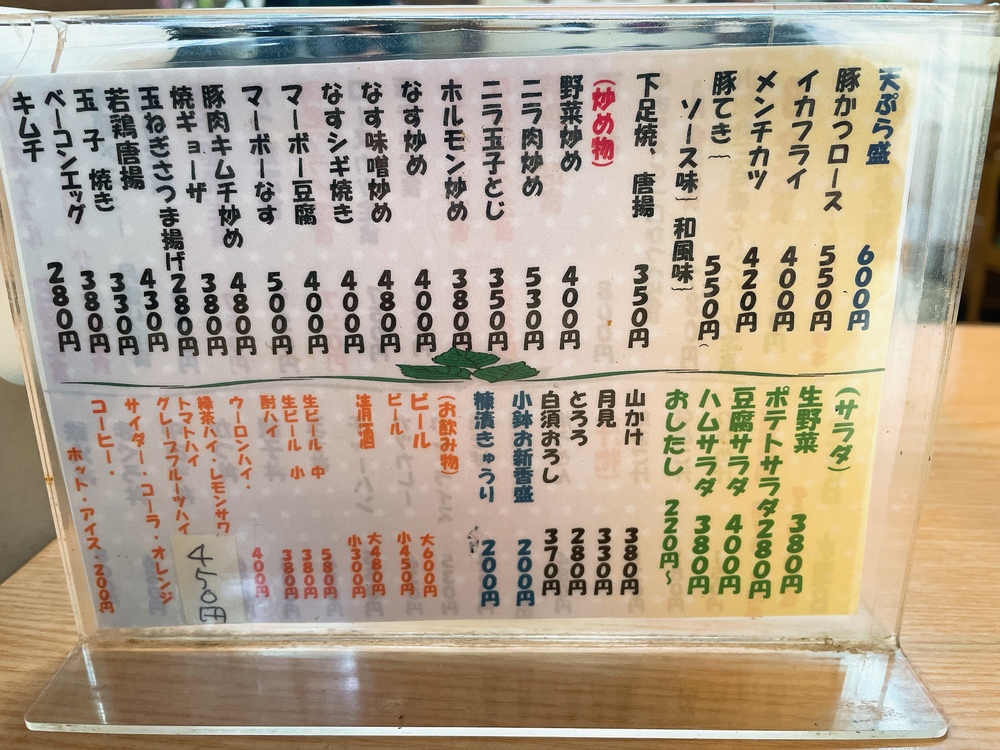 天ぷら盛 600円
豚かつロース 550円
イカフライ 400円
メンチカツ 420円
豚てき 550円
ソース味 和風味
下足焼、唐揚 350円
(炒め物)
野菜炒め 400円
ニラ肉炒め 530円
ニラ玉子とじ 350円
ホルモン炒め 380円
なす炒め 400円
なす味噌炒め 480円
なすシギ焼き 400円
マーボー豆腐 400円
マーボーなす 500円
豚肉キムチ炒め 480円
焼ギョーザ 380円
玉ねぎさつま揚げ 280円
若鶏唐揚 430円
玉子焼き 330円
ベーコンエッグ 380円
キムチ 280円
(サラダ)
生野菜 380円
ポテトサラダ 280円
豆腐サラダ 400円
ハムサラダ 380円
おしたし 220円~
山かけ 380円
月見 330円
とろろ 280円
白須おろし 370円
小鉢お新香盛 200円
棟漬きゅうり 200円
(お飲み物)
ビール 大600円
ビール 小450円
清酒 大480円
小300円
生ビール 中 580円
生ビール 小 380円
酎ハイ 380円
ウーロンハイ・ 400円
緑茶ハイ・レモンサワ
トマトハイ
グレープフルーツハイ
450円
サイダー・コーラ・オレンジ
コーヒー・
ホット・アイス・200円